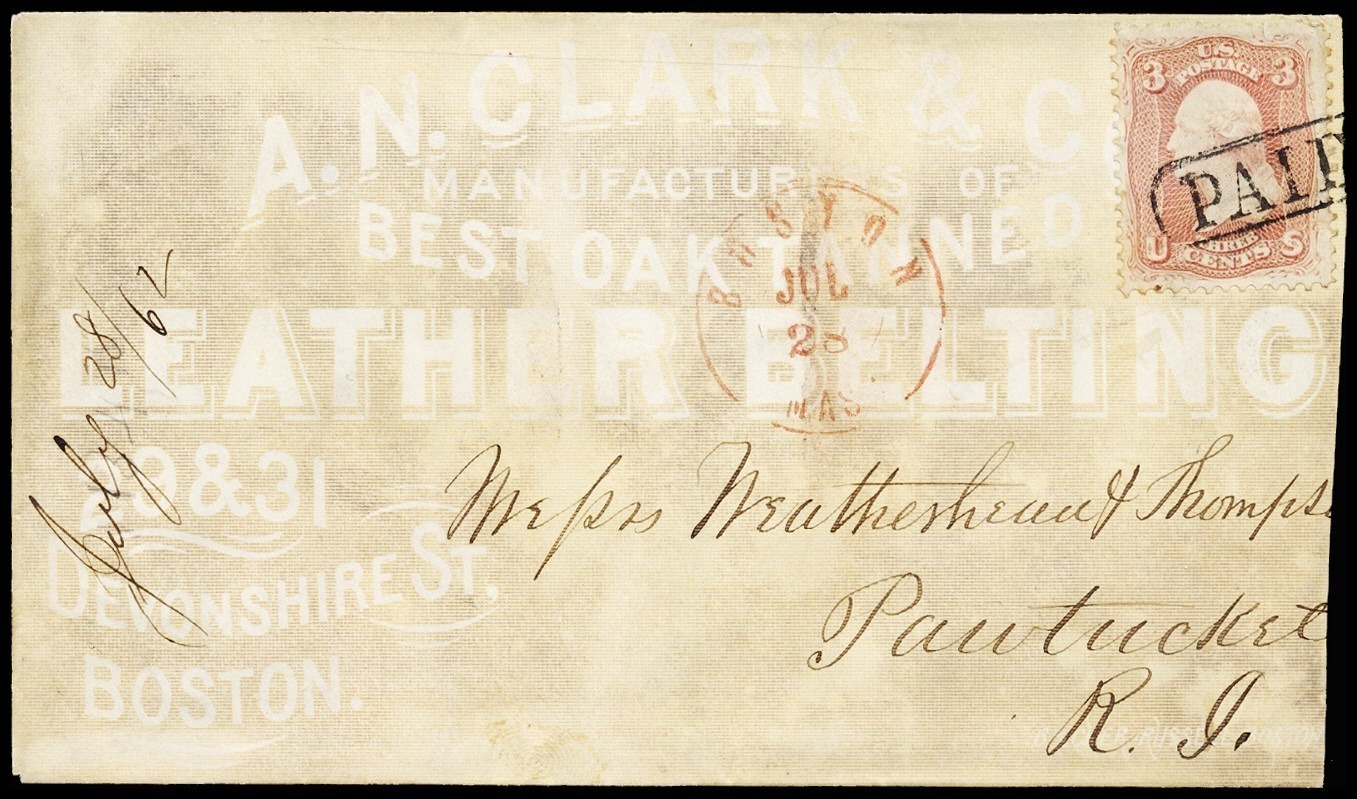 A. N. CLARK & C
MANUFACTURERS OF
BEST OAK TANNED
LEATHER BELTING
29 & 31
DEVONSHIRE ST,
BOSTON.
U.S.
POSTAGE
3 3
THREE
CENTS
U S
PAID
BOSTON
JUL
28
MAS
July 28/62
Messrs Weatherhead & Thomps
Pawtucket
R. I.